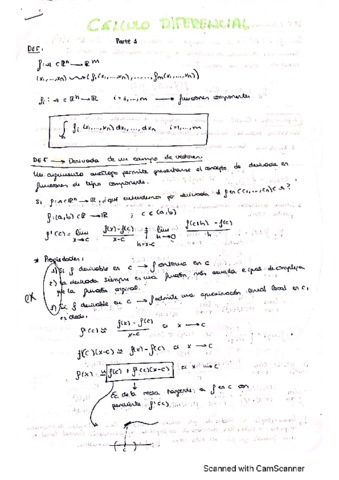 CALCULO DIFERENCIAL
Parte 1
DEF:
f: A ⊂ ℝⁿ → ℝᵐ
(x₁,...,xₙ) ⟿ (f₁(x₁,...,xₙ), ......, fₘ(x₁,...,xₙ))
fᵢ: A ⊂ ℝⁿ → ℝ i=1,...,m → funciones componentes
∫ fᵢ(x₁,...,xₙ) dx₁,...,dxₙ i=1,...,m
DEF → Derivada de un campo de vectores:
Un argumento análogo permite el concepto de derivada en
funciones de tipo componente.
Si f: A ⊂ ℝⁿ → ℝ, ¿qué entendemos por derivada de f en
f: (a,b) ⊂ ℝ → ℝ ; c ∈ (a,b)
f'(c) = lim x→c f(x)-f(c) / x-c = lim h→0 f(c+h)-f(c) / h
h=x-c
* Propiedades:
1) Si f derivable en c → f continua en c
2) La derivada siempre es una función, más sencilla o igual de compleja
que la función original.
3) Si f derivable en c → f admite una aproximación lineal local en c,
es decir
f'(c) ≅ f(x)-f(c) / x-c si x → c
f'(c)(x-c) ≅ f(x)-f(c) si x → c
f(x) ≅ f(c) + f'(c)(x-c) si x → c
Ec de la recta tangente a f en c con
pendiente f'(c)
c
Scanned with CamScanner